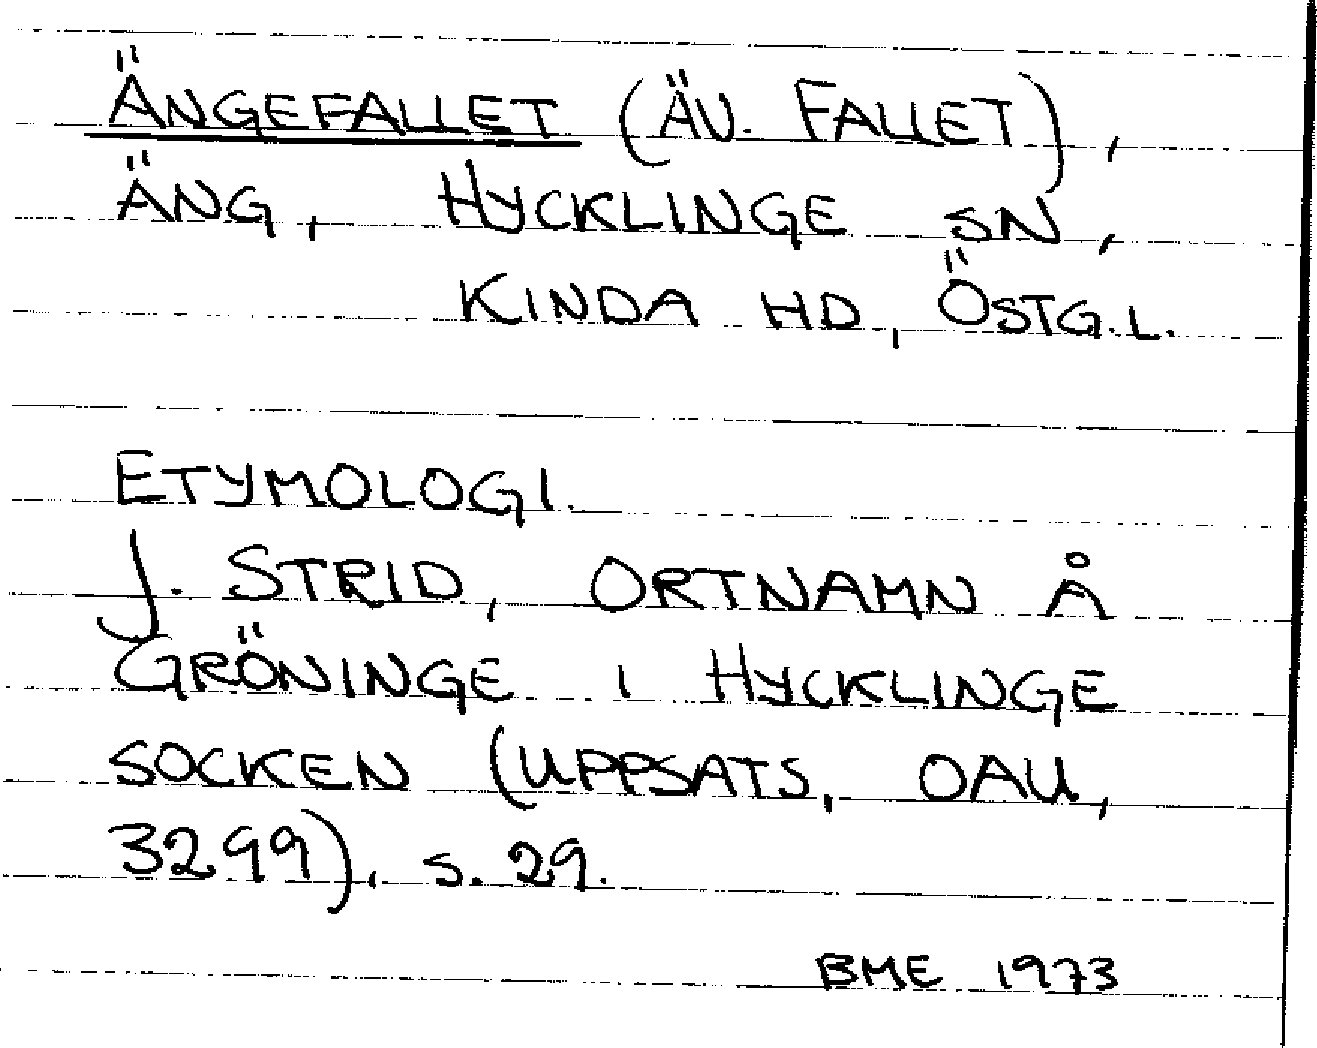 ÄNGEFALLET (ÄV. FALLET),
ÄNG, HYCKLINGE SN,
KINDA HD, ÖSTG.L.
ETYMOLOGI.
J. STRID, ORTNAMN Å
GRÖNINGE I HYCKLINGE
SOCKEN (UPPSATS, OAU,
3299), S. 29.
BME 1973